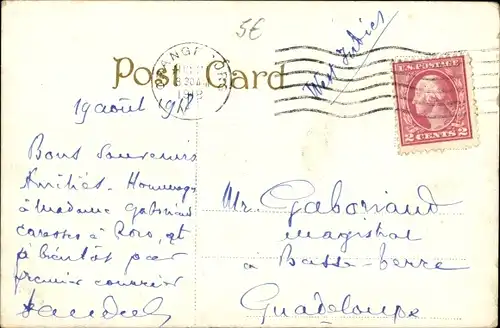 5€
West Indies
Post Card
ORANGE
830A
1918
U.S. POSTAGE
2 CENTS 2
19 août 918
Bons Souvenirs
Amitiés. Hommages
à Madame Gaboriaud
caresses à Roro, et
à bientôt par
premier courrier
Mr. Gaboriaud
magistrat
à Basse-Terre
Guadeloupe